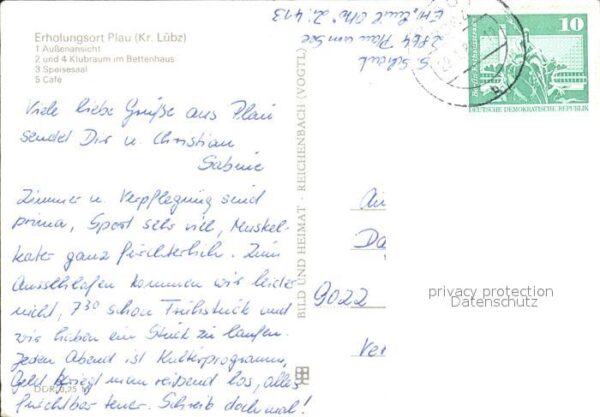 Erholungsort Plau (Kr. Lübz)
1 Außenansicht
2 und 4 Klubraum im Bettenhaus
3 Speisesaal
5 Café
Viele liebe Grüße aus Plau
sendet Dir u. Christian
Sabine
Zimmer u. Verpflegung sind
prima, Sport sehr viel, Muskel-
kater ganz fürchterlich. Zum
Ausschlafen kommen wir leider
nicht, 7³⁰ schon Frühstück und
wir haben ein Stück zu laufen.
Jeden Abend ist Kulturprogramm,
Geld kriegt man reißend los, alles
furchtbar teuer. Schreib doch mal!
DDR 0,25 M
BILD UND HEIMAT · REICHENBACH (VOGTL)
2864 Plau am See
Z. 413
10
DEUTSCHE DEMOKRATISCHE REPUBLIK
9022
privacy protection
Datenschutz